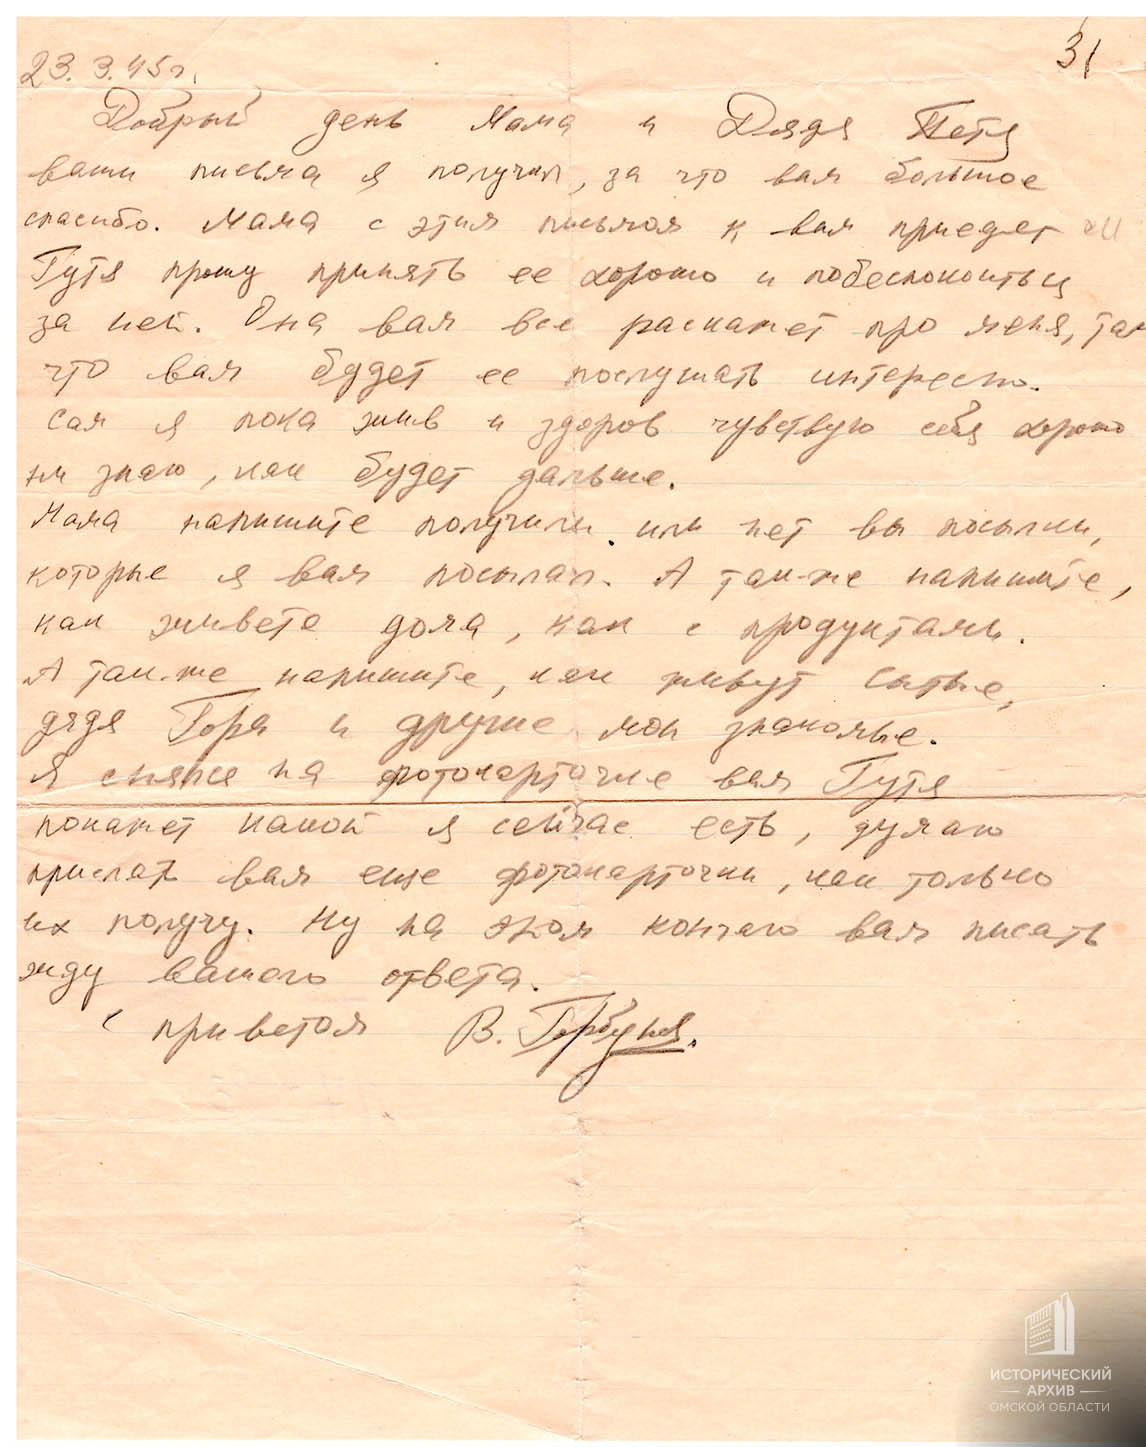 31
23.3.45г.
Добрый день Мама и Дядя Петя
ваши письма я получил, за что вам большое
спасибо. Мама с этим письмом к вам приедет
Гутя прошу принять ее хорошо и побеспокоиться
за ней. Она вам все раскажет про меня, так
что вам будет ее послушать интересно.
Сам я пока жив и здоров чувствую себя хорошо
ни знаю, как будет дальше.
Мама напишите получили или нет вы посылки,
которые я вам посылал. А так-же напишите,
как живете дома, как с продуктами.
А так-же напишите, как живут Сытые,
дядя Горя и другие мои знакомые.
Я снялся на фотокарточке вам Гутя
покажет какой я сейчас есть, думаю
прислать вам еще фотокарточки, как только
их получу. Ну на этом кончаю вам писать
жду вашего ответа.
с приветом В. Горбуня.
ИСТОРИЧЕСКИЙ
АРХИВ
ОМСКОЙ ОБЛАСТИ